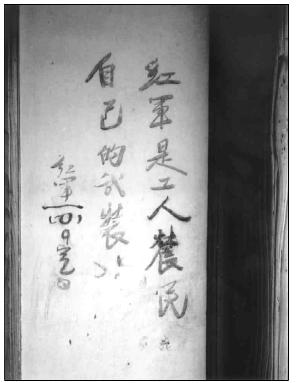 紅軍是工人農民
自己的武裝！！
紅軍一四〇